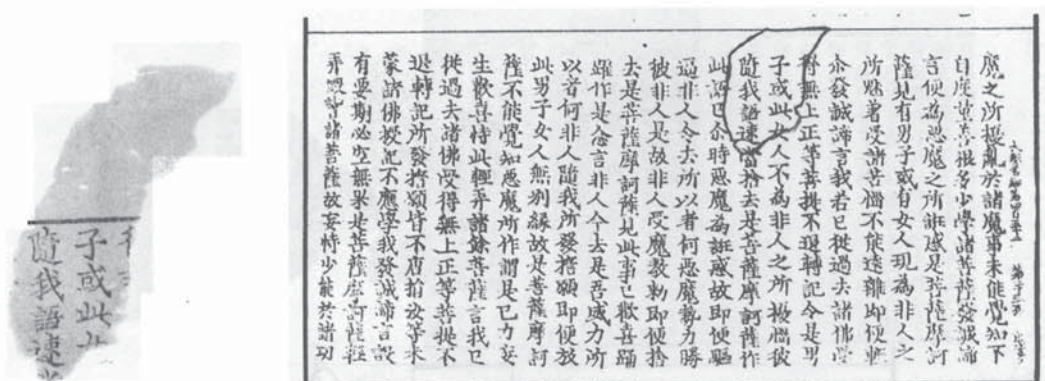 子或此
隨我語速
魔之所擾亂於諸魔事未能覺知下
自度量善根多少學諸菩薩發誠諦
言便為惡魔之所誑惑是菩薩摩訶
薩見有男子或有女人現為非人之
所魅著受諸苦惱不能遠離即便輕
尒發誠諦言我若已從過去諸佛受
得無上正等菩提不退轉記令是男
子或此女人不為非人之所擾惱彼
隨我語速當捨去是菩薩摩訶薩作
此語已尒時惡魔為誑惑故即便驅
逼非人令去所以者何惡魔勢力勝
彼非人是故非人受魔教勑即便捨
去是菩薩摩訶薩見此事已歡喜踊
躍作是念言非人今去是吾威力所
以者何非人隨我所發誓願即便放
此男子女人無別緣故是菩薩摩訶
薩不能覺知惡魔所作謂是己力妄
生歡喜恃此輕弄諸餘菩薩言我已
從過去諸佛受得無上正等菩提不
退轉記所發誓願皆不唐捐汝等未
蒙諸佛授記不應學我發誠諦言設
有要期必空無果是菩薩摩訶薩輕
弄毀呰諸菩薩故妄恃少能於諸功